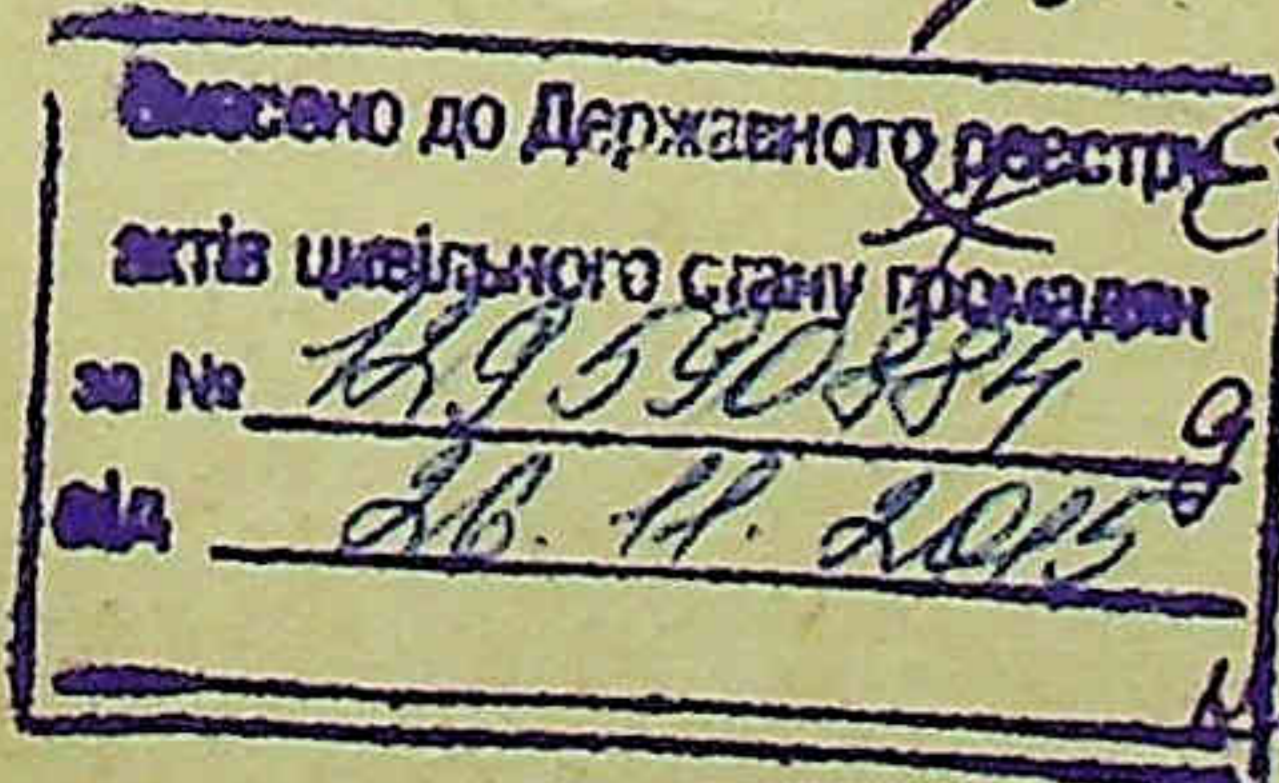 Внесено до Державного реєстру
актів цивільного стану громадян
за № 129590884
від 26. 11. 2015